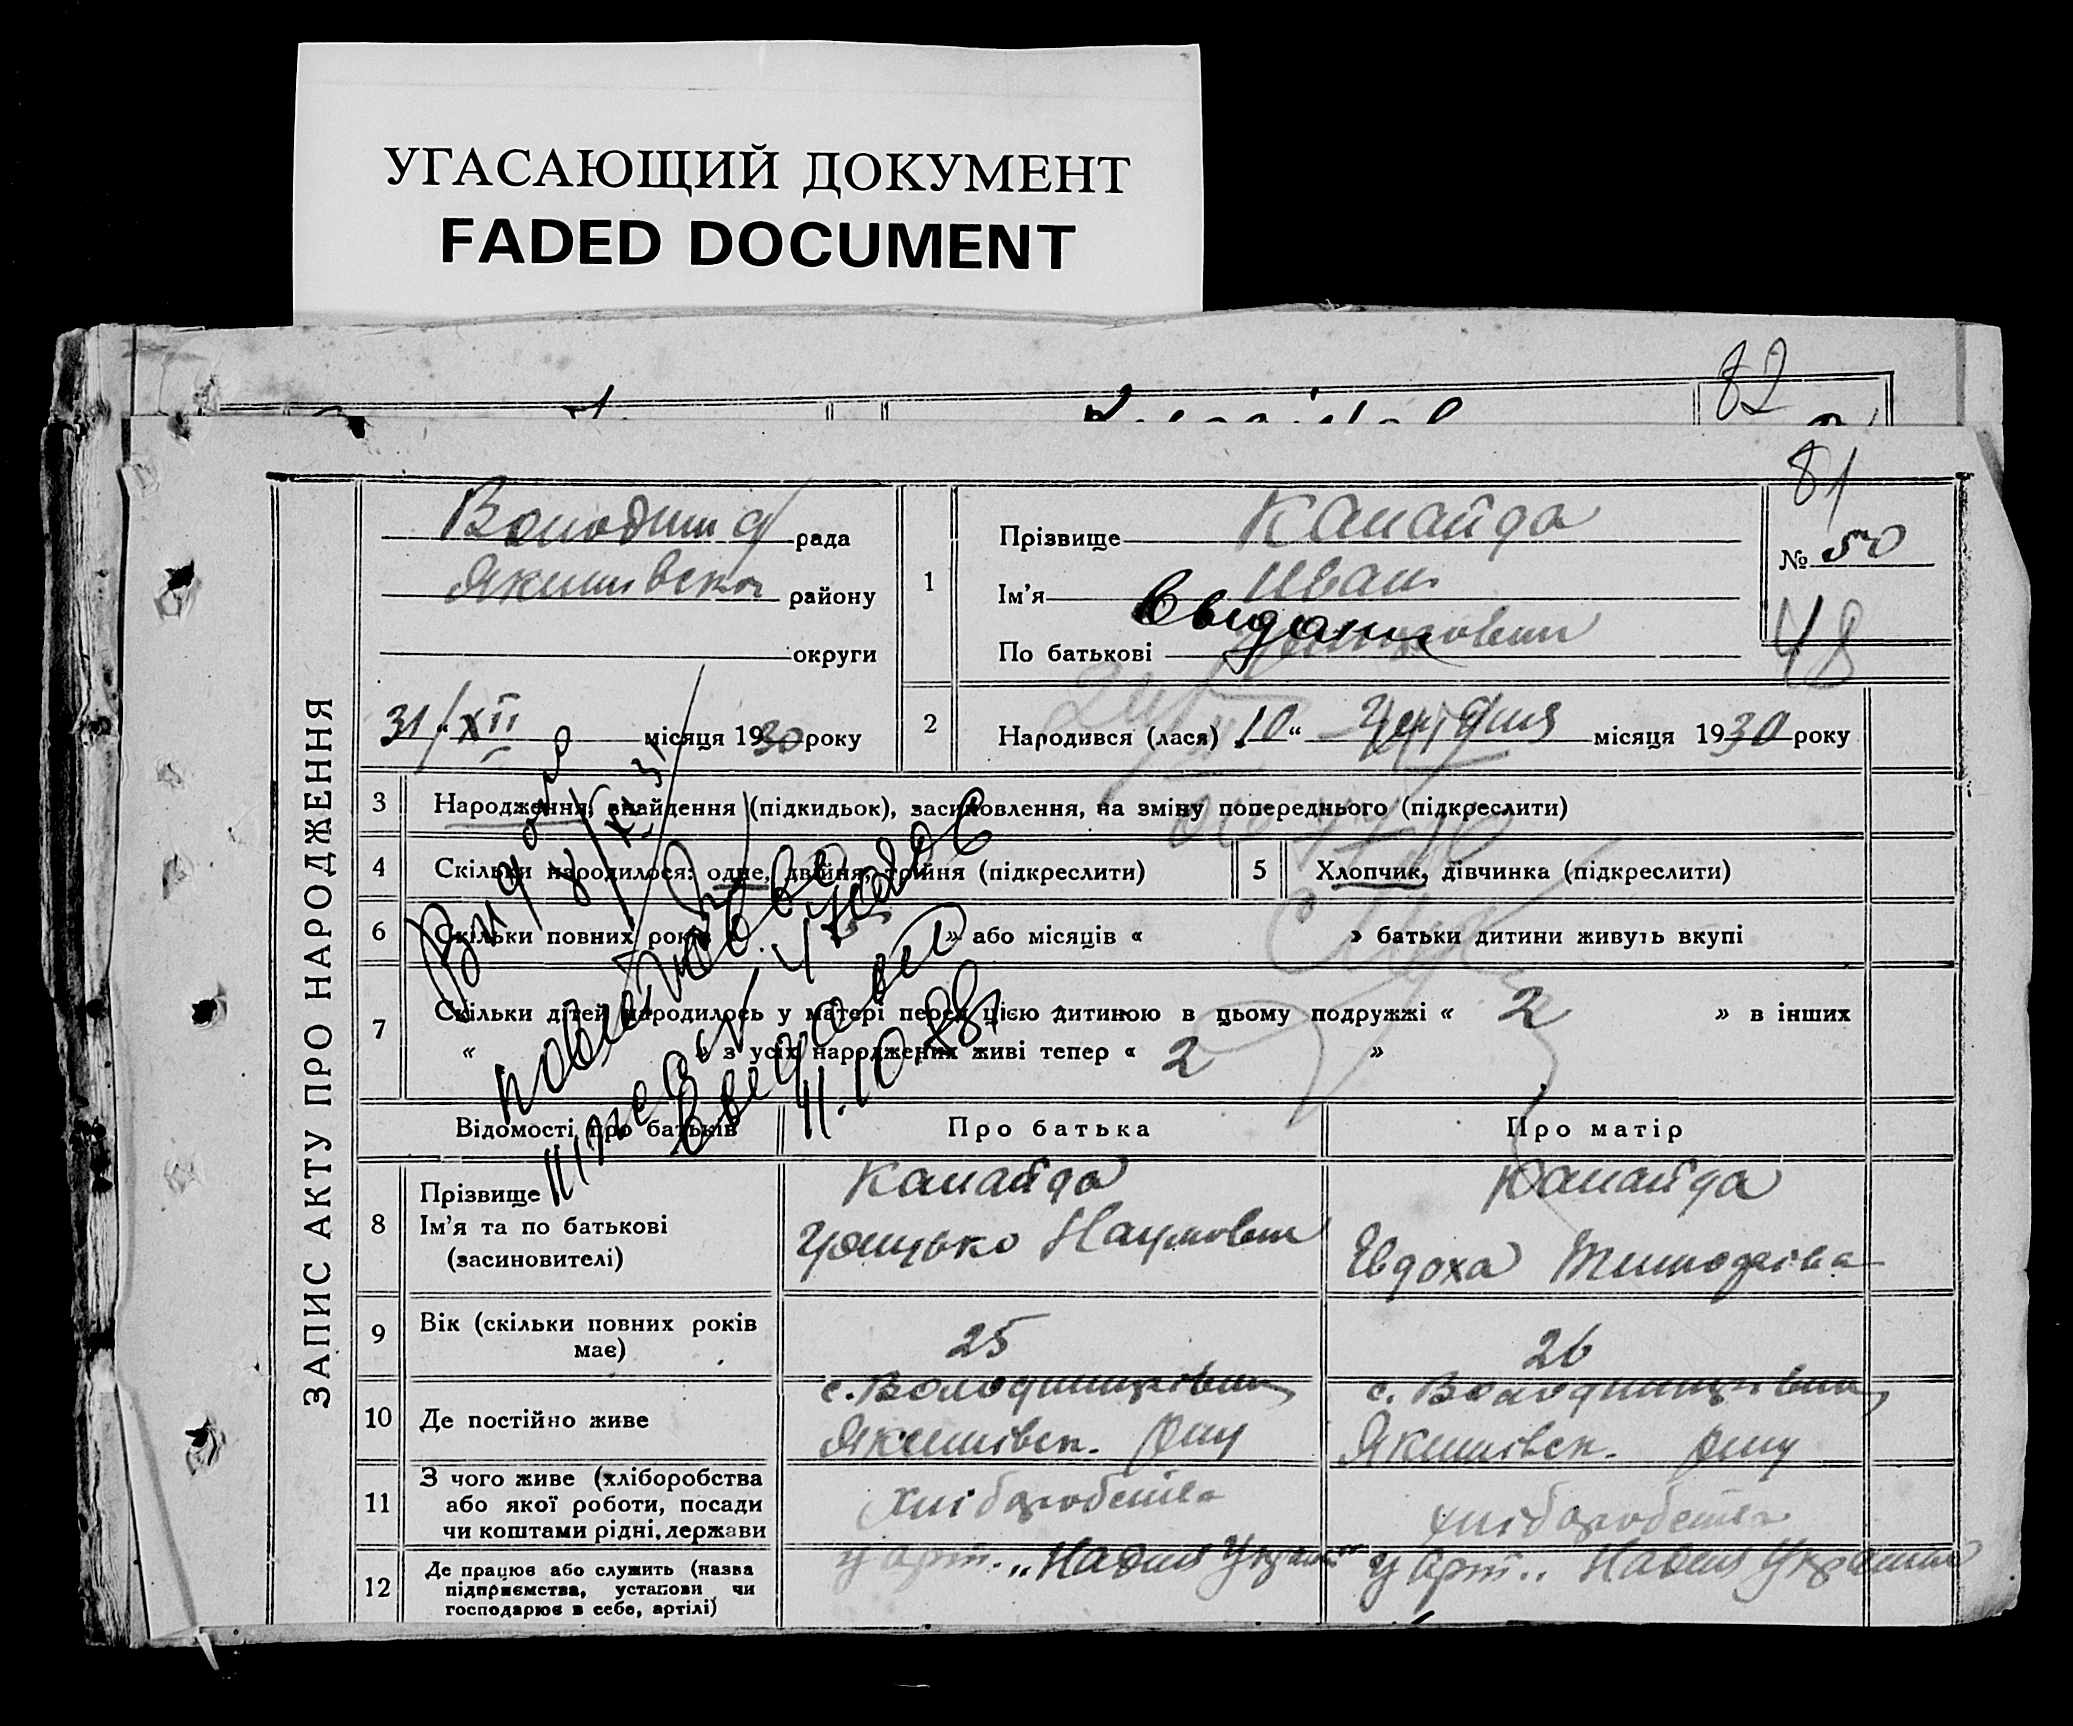 УГАСАЮЩИЙ ДОКУМЕНТ
FADED DOCUMENT
82
81
ЗАПИС АКТУ ПРО НАРОДЖЕННЯ
рада
району
округи
31/XII місяця 1930 року
1
Прізвище Калайда
Ім'я Иван
По батькові
№ 50
48
2
Народився (лася) „10“ Грудня місяця 1930 року
3
Народження, знайдення (підкидьок), засиновлення, на зміну попереднього (підкреслити)
4
Скільки народилося: одне, двійня, трійня (підкреслити)
5
Хлопчик, дівчинка (підкреслити)
6
Скільки повних років » або місяців « » батьки дитини живуть вкупі
7
Скільки дітей народилось у матері перед цією дитиною в цьому подружжі « 2 » в інших
« » з усіх народжених живі тепер « 2 »
Видано
11.10.88
Відомості про батьків
Про батька
Про матір
8
Прізвище
Ім'я та по батькові
(засиновителі)
Калайда
Грицько Наумович
Калайда
Евдоха Тимофіївна
9
Вік (скільки повних років
має)
25
26
10
Де постійно живе
с. Володимирівки
Якимівск. р-ну
с. Володимирівки
Якимівск. р-ну
11
З чого живе (хліборобства
або якої роботи, посади
чи коштами рідні, держави
хліборобства
хліборобства
12
Де працює або служить (назва
підприємства, установи чи
господарює в себе, артілі)
у арт. „Надія України“
у арт. „Надія України